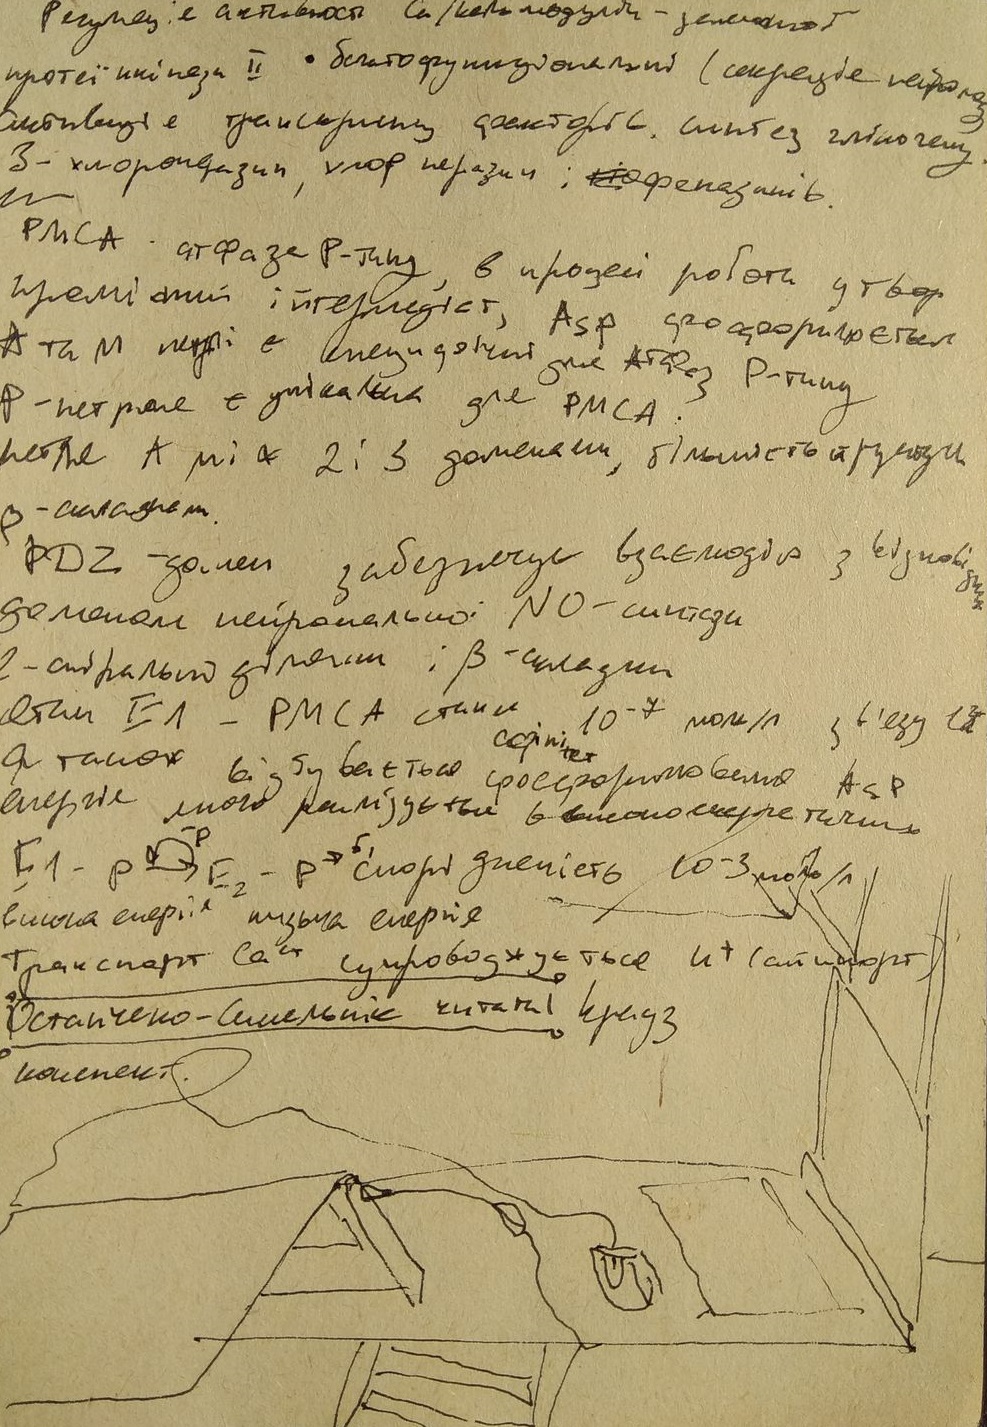 Регуляціє активності Ca/кальмодулін-залежної
протеїнкінази II • багатофункціональні (секреціє
активаціє транскрипц факторів. синтез глікогену.
3-хлорпромазин, хлорперазин і феназинів.
PMCA. атфазе P-типу, в процесі роботи утвор
проміжний інтермедіат, Asp фосфорилюєтьсе
A та M петлі є специфічні дле АТФаз P-типу
P-петле є унікальна дле PMCA.
петле A між 2 і 3 доменами, більшість структури
β-складками.
PDZ-домен забезпечує взаємодію з відповідним
доменом нейрональної NO-синтази
2-спіральні ділянки і β-складки
Стан E1 - PMCA 10⁻⁷ моль/л зв'язу Ca
а також відбуваєтьсе фосфорилюванне Asp
енергіе якого реалізуєтьсе в високоенергетичних
E1-P E2-P спорідненість 10-3 моль/л
висока енергія низька енергіе
Транспорт Ca²⁺ супроводжуєтьсе H⁺ (антипорт)
Остапчено-Синельнік читати! Кредз
конспект.